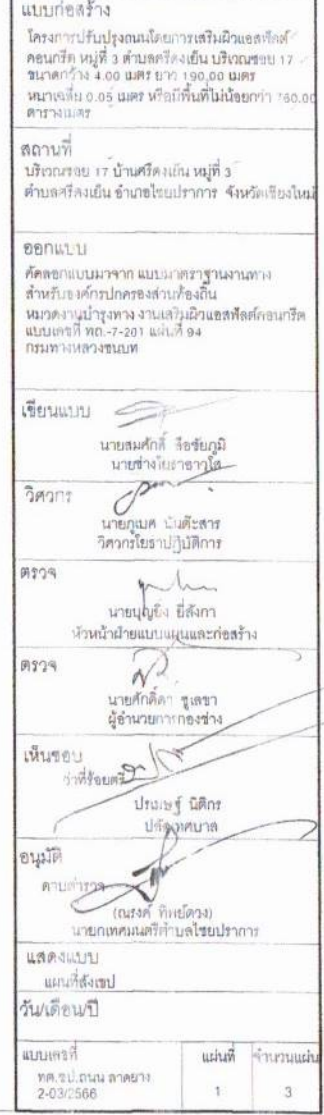 แบบก่อสร้าง
โครงการปรับปรุงถนนโดยการเสริมผิวแอสฟัลต์
คอนกรีต หมู่ที่ 3 ตำบลศรีดงเย็น บริเวณซอย 17
ขนาดกว้าง 4.00 เมตร ยาว 190.00 เมตร
หนาเฉลี่ย 0.05 เมตร หรือมีพื้นที่ไม่น้อยกว่า 760.00
ตารางเมตร
สถานที่
บริเวณซอย 17 บ้านศรีดงเย็น หมู่ที่ 3
ตำบลศรีดงเย็น อำเภอไชยปราการ จังหวัดเชียงใหม่
ออกแบบ
คัดลอกแบบมาจาก แบบมาตรฐานงานทาง
สำหรับองค์กรปกครองส่วนท้องถิ่น
หมวดงานบำรุงทาง งานเสริมผิวแอสฟัลต์คอนกรีต
แบบเลขที่ ทถ.-7-201 แผ่นที่ 94
กรมทางหลวงชนบท
เขียนแบบ
นายสมศักดิ์ ลือชัยภูมิ
นายช่างโยธาอาวุโส
วิศวกร
นายภูเบศ นันต๊ะสาร
วิศวกรโยธาปฏิบัติการ
ตรวจ
นายบุญยิ่ง ยี่ลังกา
หัวหน้าฝ่ายแบบแผนและก่อสร้าง
ตรวจ
นายศักดิ์ดา ชูเลขา
ผู้อำนวยการกองช่าง
เห็นชอบ
ว่าที่ร้อยตรี
ปรเมษฐ์ นิติกร
ปลัดเทศบาล
อนุมัติ
ดาบตำรวจ
(ณรงค์ ทิพย์ดวง)
นายกเทศมนตรีตำบลไชยปราการ
แสดงแบบ
แผนที่สังเขป
วัน/เดือน/ปี
แบบเลขที่ แผ่นที่ จำนวนแผ่น
ทต.ชป.ถนน ลาดยาง
2-03/2566 1 3